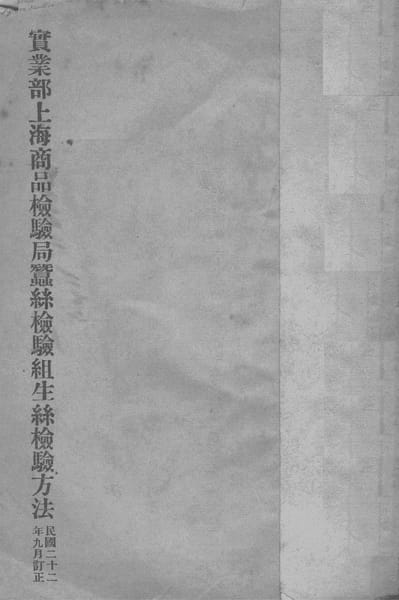 實業部上海商品檢驗局蠶絲檢驗組生絲檢驗方法
民國二十二
年九月訂正